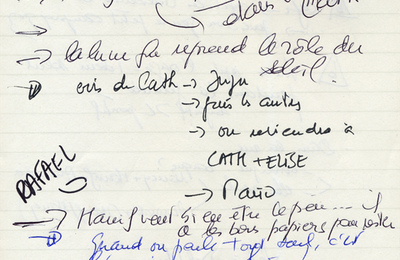 dans
→ la lune qui reprend le rôle du
soleil.
→ cris de Cath → Juju
→ puis les autres
→ on reviendra à
CATH + ELISE
RAFAEL
→ Mano
→ Manu veut bien être le père... il
a les bons papiers pour rester
→ Quand on parle tout seul, c'est